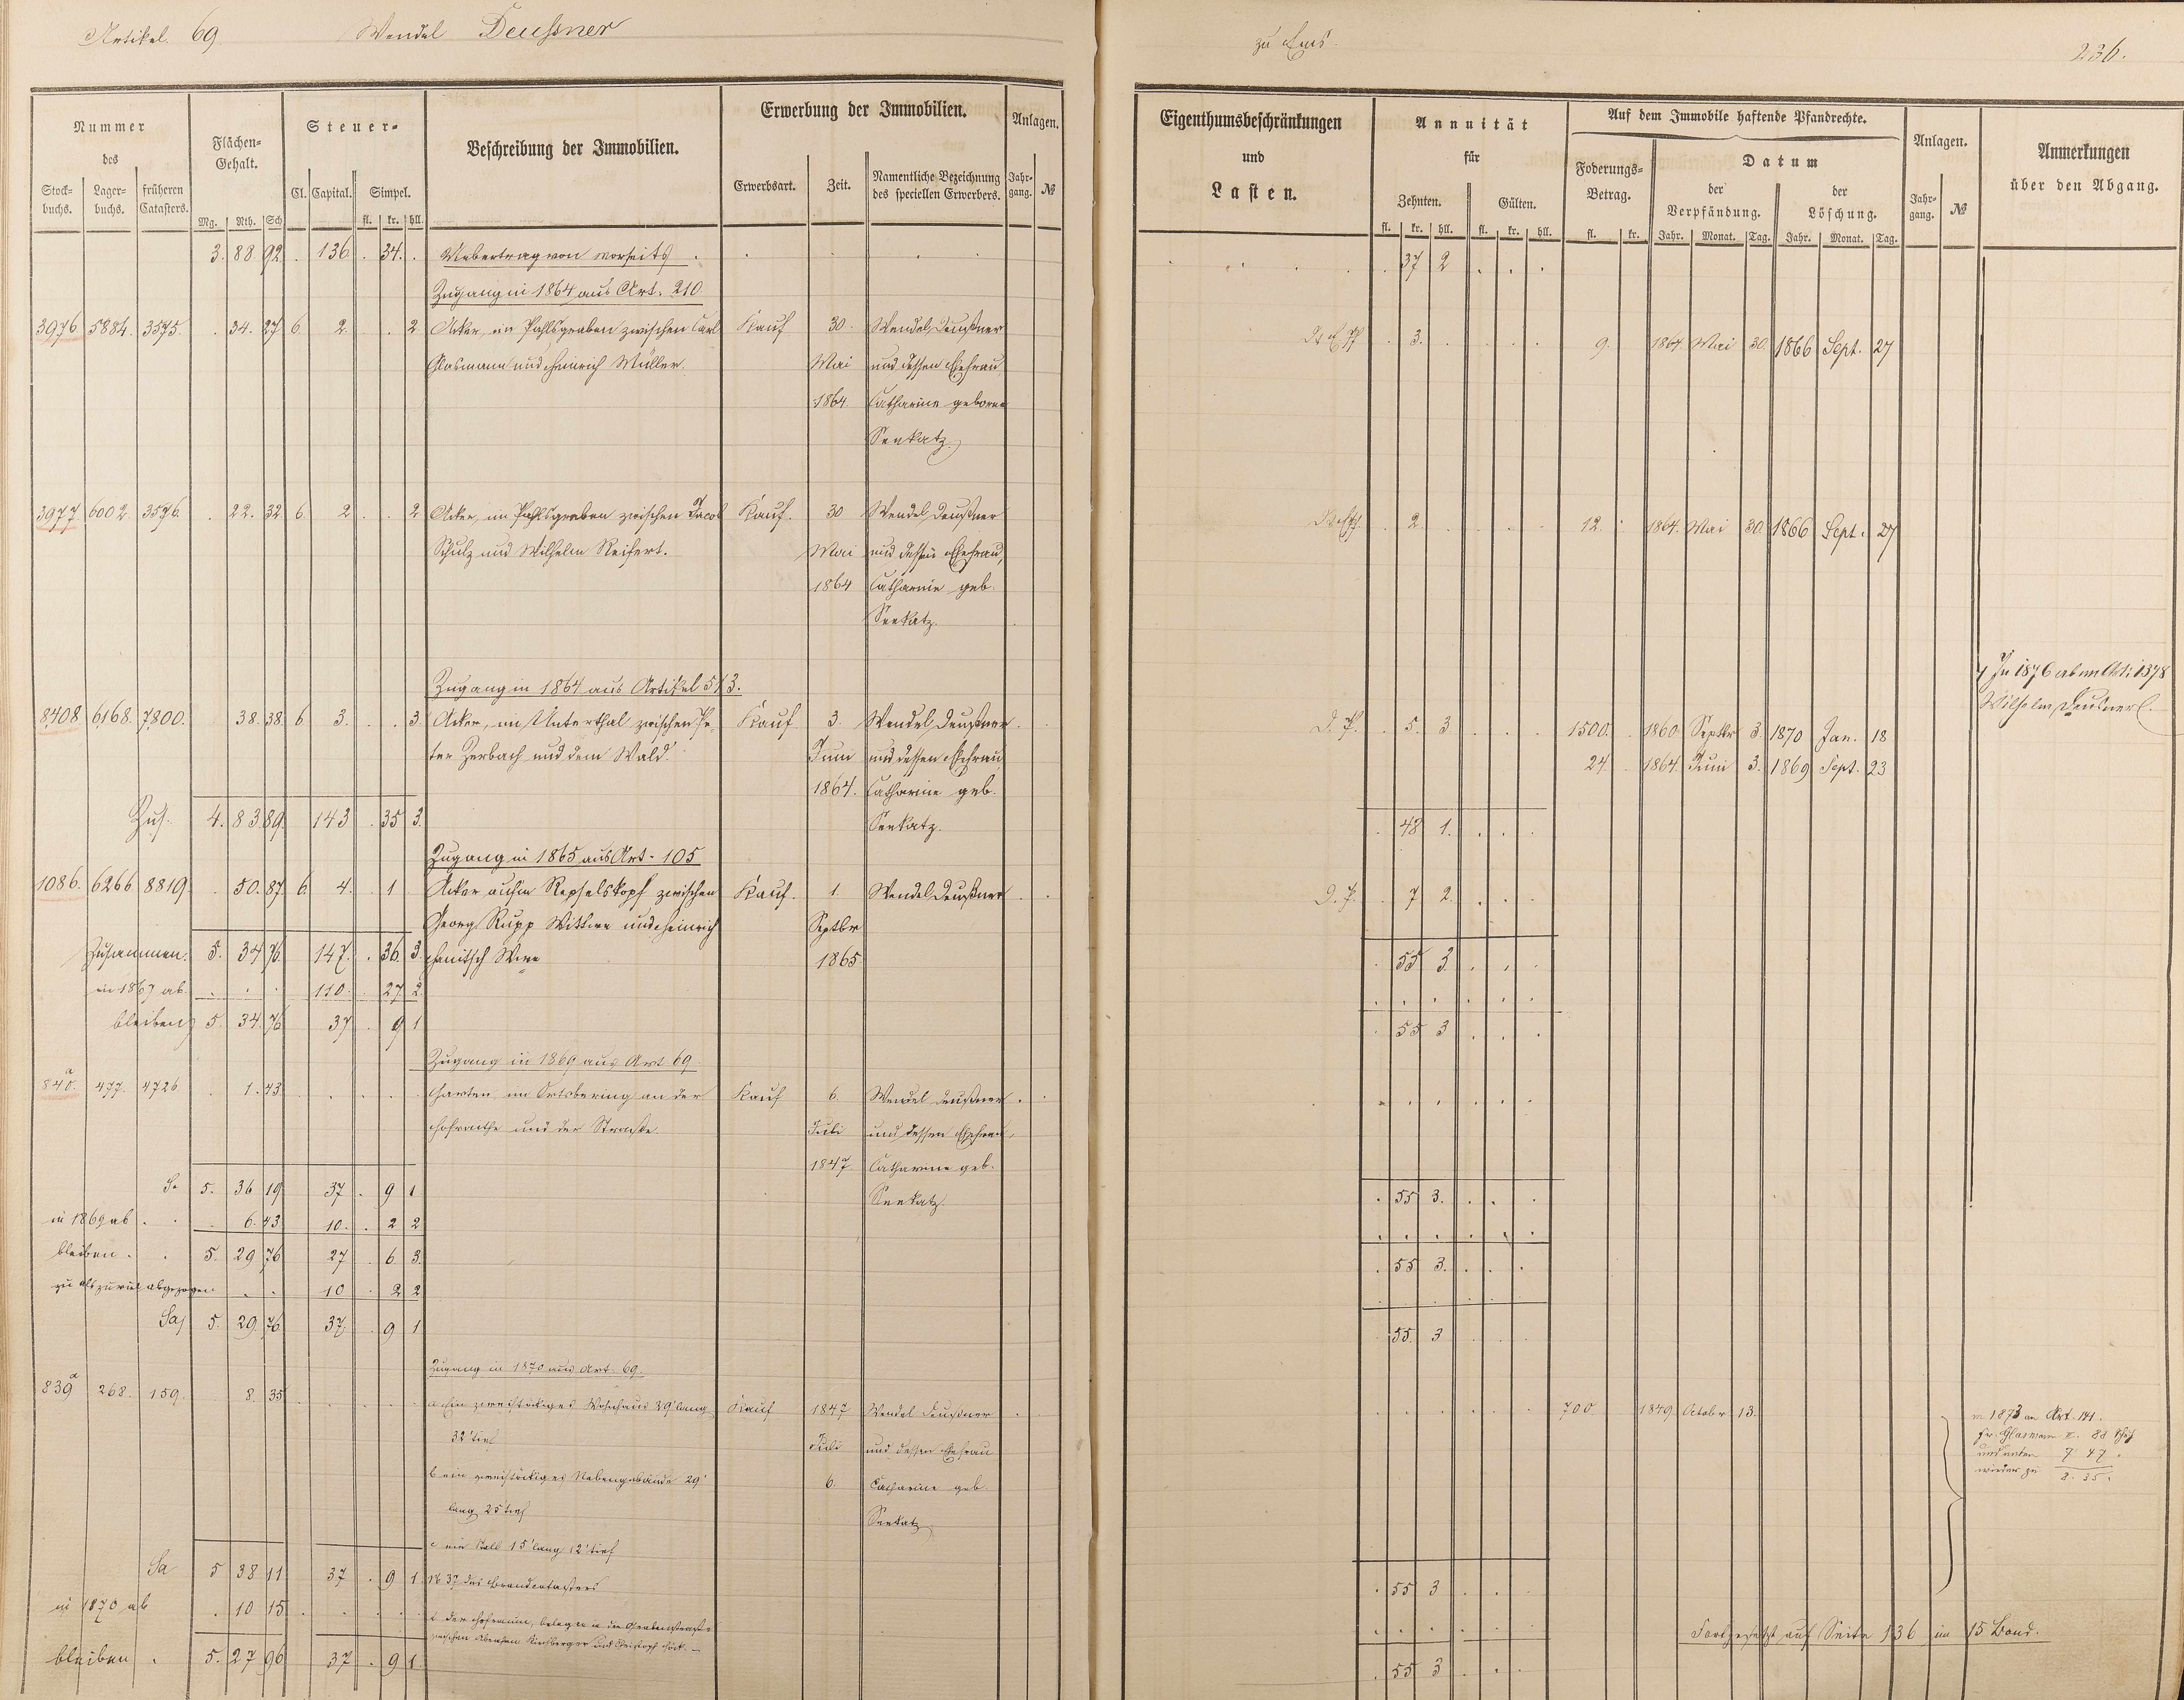 Artikel. 69. Wendel Deußner
zu Ems.
236.
Nummer
des
Stock-
buchs.
Lager-
buchs.
früheren
Catasters.
Flächen-
Gehalt.
Mg. Rth. Sch
Steuer-
Cl. Capital. Simpel.
fl. kr. hll.
Beschreibung der Immobilien.
Erwerbung der Immobilien.
Erwerbsart. Zeit.
Namentliche Bezeichnung
des speciellen Erwerbers.
Anlagen.
Jahr-
gang. №
Eigenthumsbeschränkungen
und
Lasten.
Annuität
für
Zehnten. Gülten.
fl. kr. hll. fl. kr. hll.
Auf dem Immobile haftende Pfandrechte.
Foderungs-
Betrag.
fl. kr.
Datum
der
Verpfändung.
der
Löschung.
Jahr. Monat. Tag. Jahr. Monat. Tag.
Anlagen.
Jahr-
gang. №
Anmerkungen
über den Abgang.
3. 88. 92 . 136 . 34. . Uebertrag von vorseits . 37 2
Zugang in 1864 aus Art. 210.
3976 5884. 3575. . 34. 27 6. 2. . . 2 Acker, im Pahlsgraben zwischen Carl Kauf 30. Wendel Deußner . 3. 9. 1864. Mai 30. 1866 Sept. 27
Glasmann und Heinrich Müller. Mai und dessen Ehefrau
1864. Catharine geborne
Seekatz.
3977 6002. 3576. . 22. 32 6. 2 . . 2 Acker, im Pahlsgraben zwischen Jacob Kauf. 30 Wendel Deußner . 2 12. 1864. Mai 30. 1866 Sept. 27
Schulz und Wilhelm Reifert. Mai und dessen Ehefrau,
1864 Catharine geb.
Seekatz.
Zugang in 1864 aus Artikel 513.
In 1876 ab an Art: 1378
Wilhelm Deusner
8408 6168. 7800. 38. 38. 6 3. . . 3. Acker, im Unterthal zwischen Pe- Kauf 3. Wendel Deußner D. P. . 5. 3 1500. 1860. Septbr 3. 1870 Jan. 18
ter Zerbach und dem Wald. Juni und dessen Ehefrau 24. 1864. Juni 3. 1869 Sept. 23
1864. Catharine geb.
Zus. 4. 83. 89. 143 . 35 3. Seekatz. . 48 1.
Zugang in 1865 aus Art. 105
1086. 6266 8819. . 50. 87. 6. 4. . 1 . Acker aufm Repselskopf zwischen Kauf. 1. Wendel Deußner D. P. . 7 2.
Georg Rupp Wittwe und Heinrich Septbr
Zusammen. 5. 34 76. 147. . 36. 3. 1865. . 55 3.
in 1867 ab. . . . 110. 27. 2.
bleiben 5. 34. 76 37 . 9 1 . 55 3
Zugang in 1869 aus Art 69.
840.a 477. 4726 . 1. 43 Garten im Ortsbering an der Kauf 6. Wendel Deußner
Hofraithe und der Straße. Juli und dessen Ehefrau,
1847 Catharine geb.
Sa 5. 36 19 37 . 9 1 Seekatz. . 55 3.
in 1869 ab . . . 6. 43 10. . 2 2
bleiben . . 5. 29 76 27 . 6 3. . 55 3.
zu als zuviel abgezogen. . . 10 . 2 2
Sa 5. 29. 76 37. . 9 1 . 55. 3
Zugang in 1870 aus Art. 69.
839a 268. 159. 8. 35 a. Ein zweistöckiges Wohnhaus 39' lang Kauf 1847 Wendel Deußner 700. 1849 Octobr 13.
32' tief Juli und dessen Ehefrau
b ein zweistöckiges Nebengebäude 29' 6. Catharine geb.
lang 25' tief Seekatz
c ein Stall 15' lang 12' tief
№ 37 des Brandcatasters
in 1873 an Art. 141.
Glasmann II. 88
und unten 7 47.
wieder zu 8. 35.
Sa 5 38 11 37 . 9 1 . 55 3
in 1870 ab . 10 15
d der Hofraum, belegen in der Grabenstraße
zwischen Abraham Kirchberger und Christoph
Fortgesetzt auf Seite 136 im 15 Band.
bleiben . 5. 27 96 37 . 9 1. . 55 3